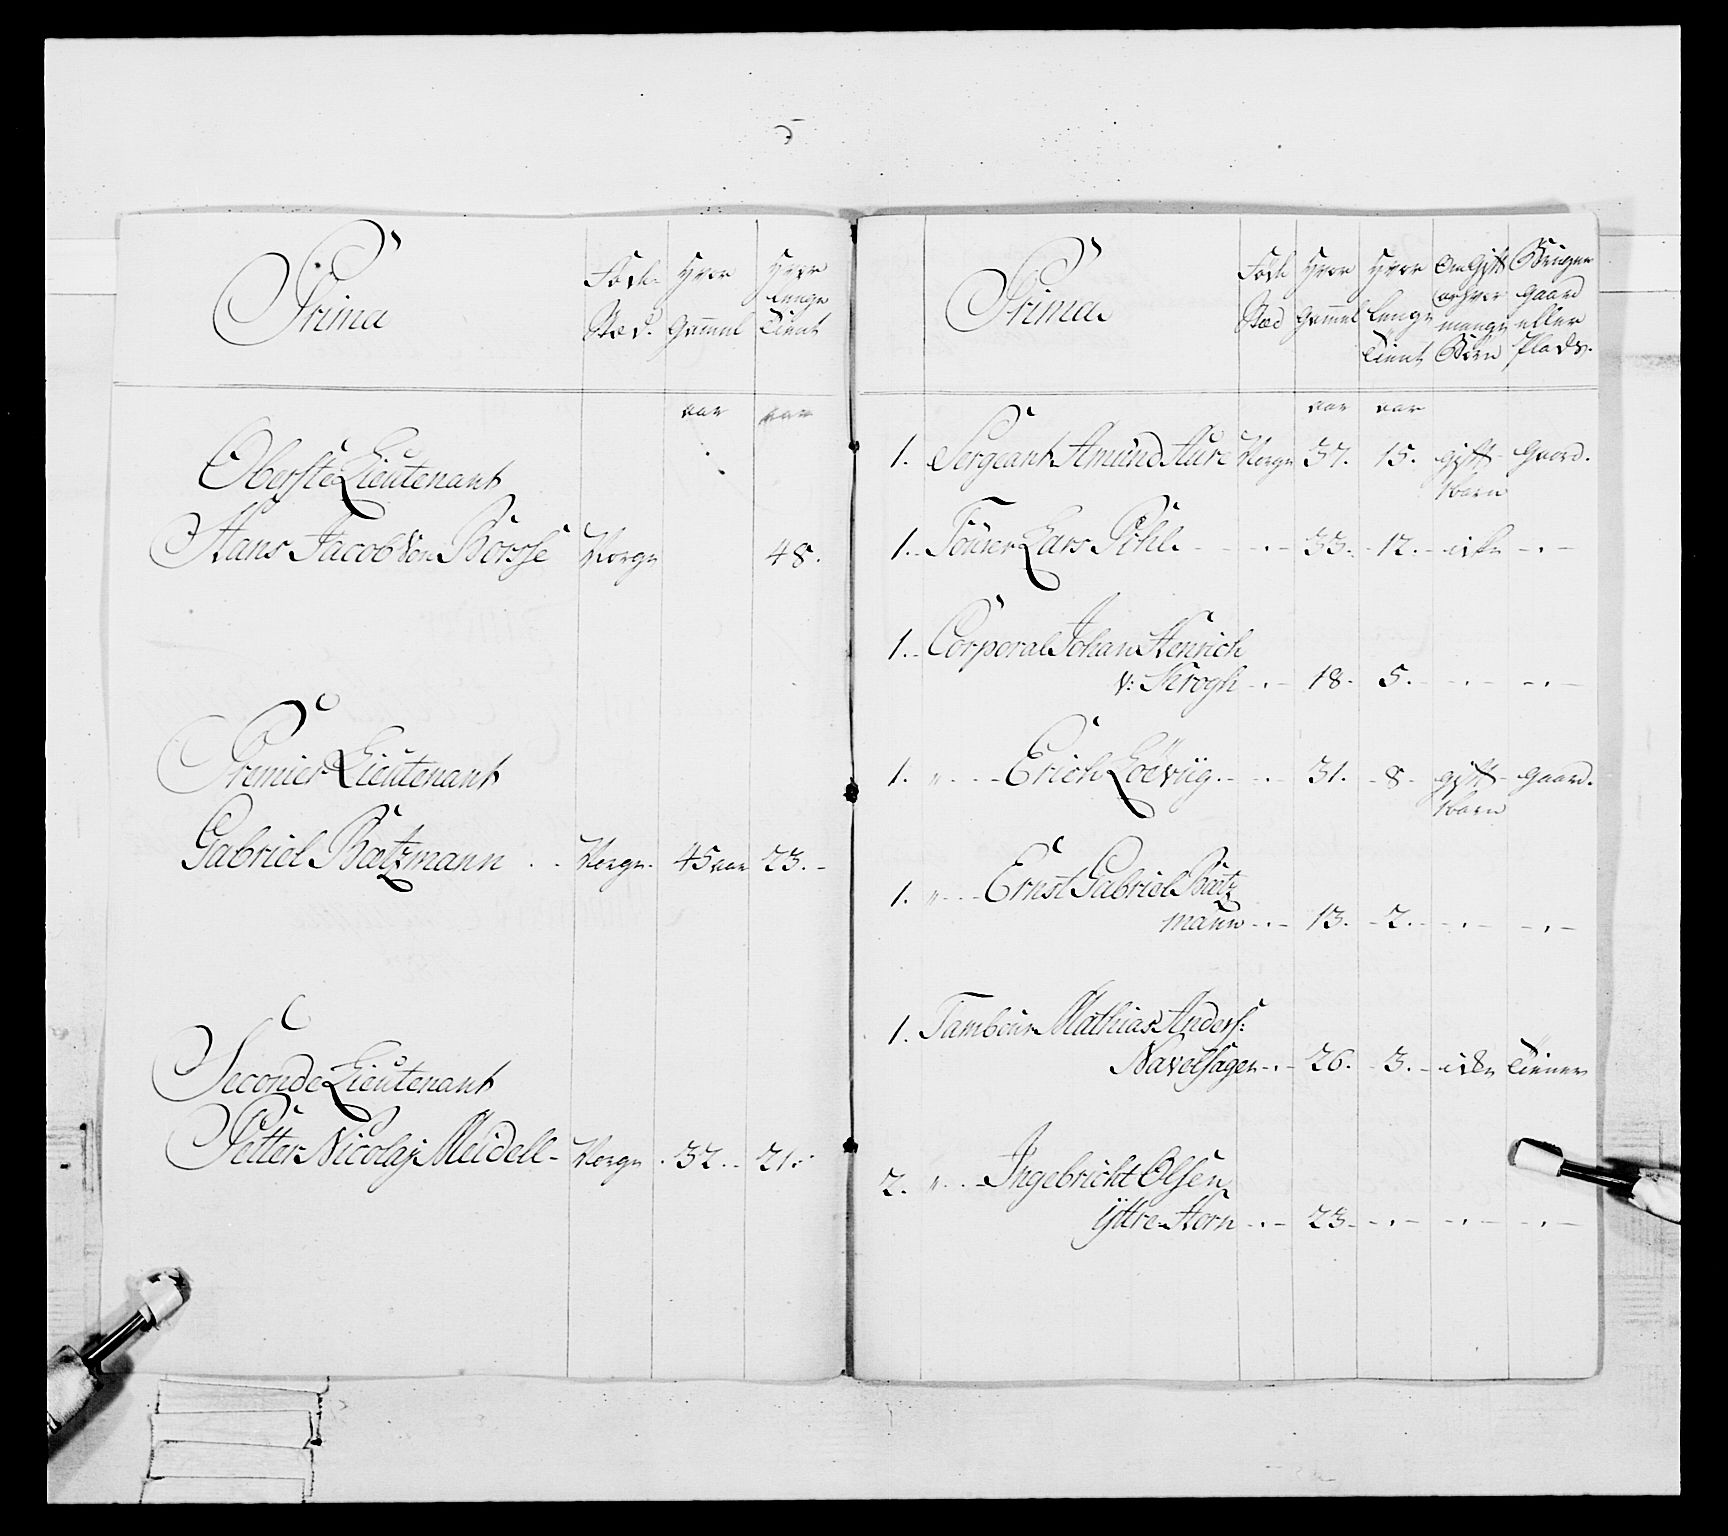 Prima
Föde Sted. Hvor Gammel Hvor lenge Tient
aar aar
Oberste Lieutenant
Hans Jacob von Börsse Norge 48.
Premier Lieutenant
Gabriel Bætzmann Norge 45 aar 23.
Seconde Lieutenant
Petter Nicolaj Meidell Norge 32. 21.
Prima
Föde Sted Hvor Gammel Hvor lenge Tient Om Gift og hvor mange Börn Bruger gaard eller Plads.
aar aar
1. Sergeant Amünd Aure Norge 37. 15. gift gaard.
1 barn
1. Fourer Lars Pihl - . - 33. 12. icke - . -
1. Corporal Johan Henrich
v: Krogh - . - 18. 5. - . - - . -
1. " Erich Löeviig - . - 31. 8. gift gaard.
1 barn
1. " Ernst Gabriel Bætz
mann - . - 13. 2. - . - - . -
1. Tambour Mathias Anders:
Navelsager - . - 26. 3. icke Tiener
2. " Ingebricht Olsen
ijttre Horn - . - 23. - . - - . - - . -